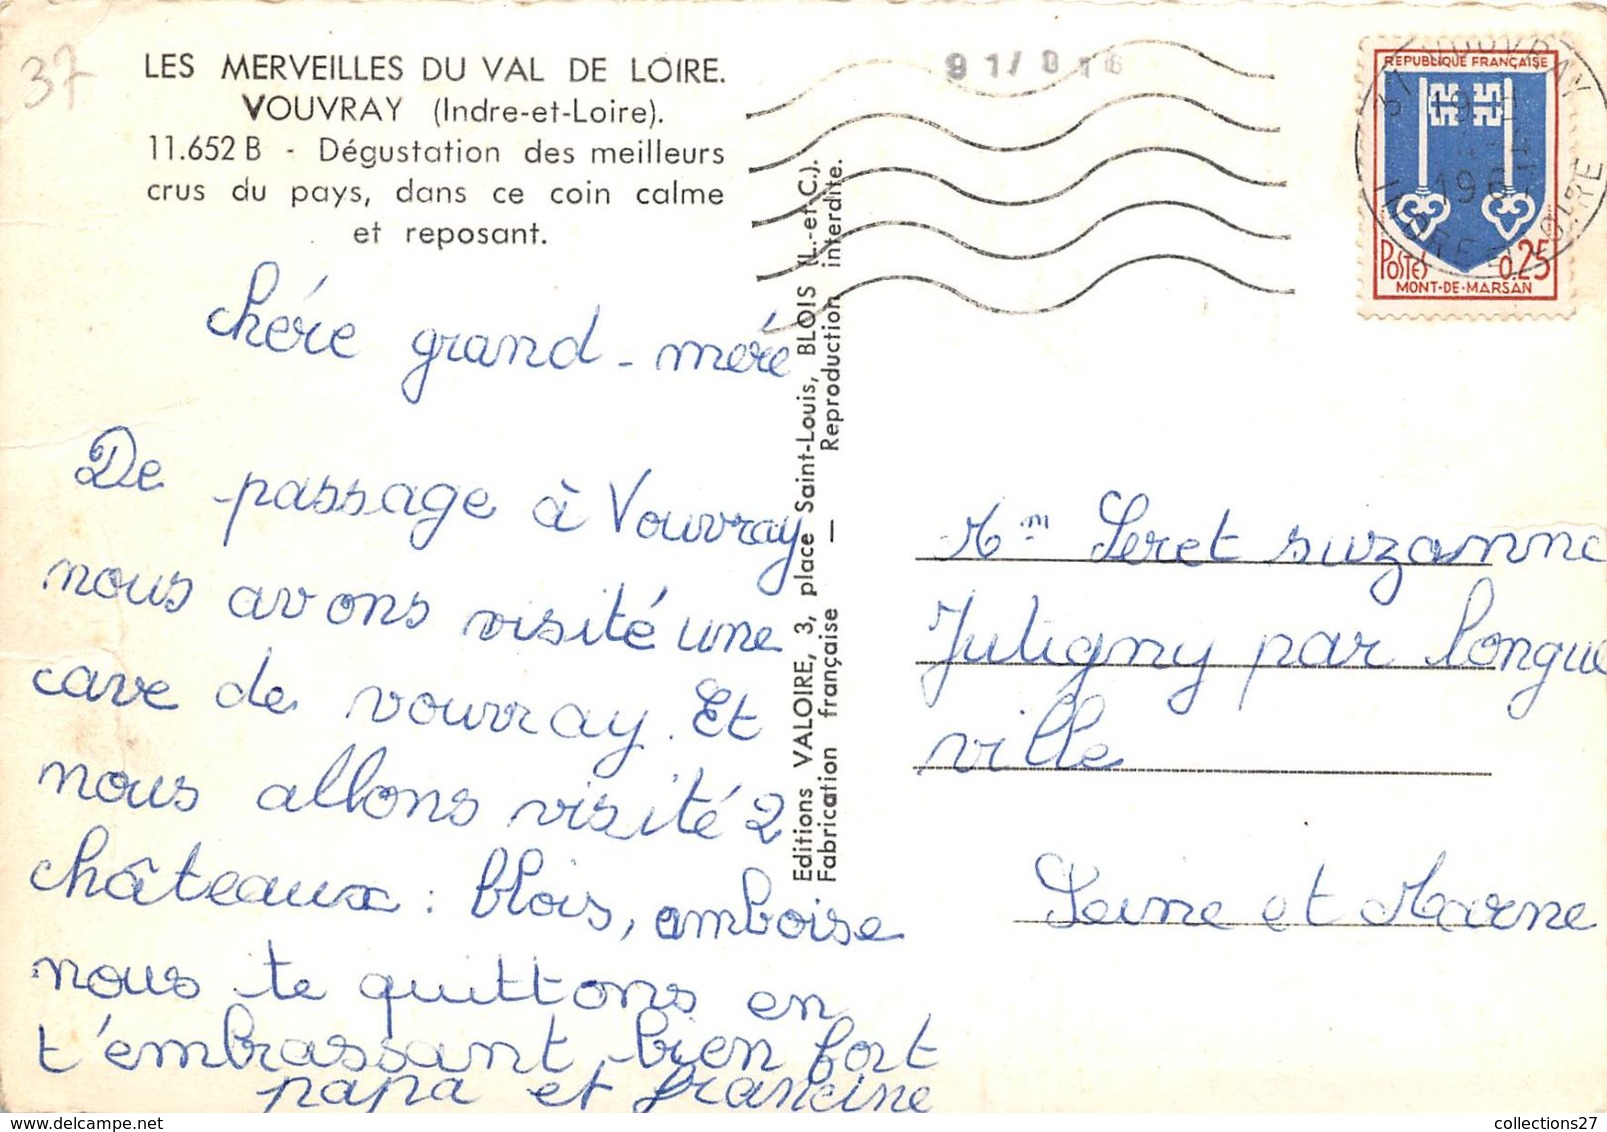 37
LES MERVEILLES DU VAL DE LOIRE.
VOUVRAY (Indre-et-Loire).
11.652 B - Dégustation des meilleurs
crus du pays, dans ce coin calme
et reposant.
chére grand-mére
De passage à Vouvray
nous avons visité une
cave de vouvray. Et
nous allons visité 2
châteaux : blois, amboise
nous te quittons en
t'embrassant bien fort
papa et francine
Editions VALOIRE, 3, place Saint-Louis, BLOIS (L.-et-C.).
Fabrication française — Reproduction interdite.
RÉPUBLIQUE FRANÇAISE
POSTES 0,25
MONT-DE-MARSAN
VOUVRAY
INDRE ET LOIRE
Mm Seret suzanne
Jutigny par longue
ville
Seine et Marne
collections27